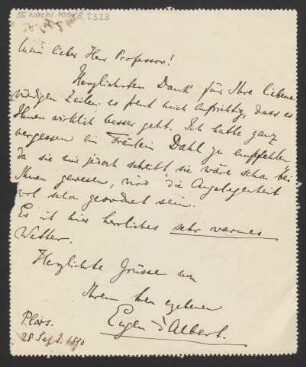 55 Nachl 100/B, 2323
Mein lieber Herr Professor!
Herzlichsten Dank für Ihre liebens-
würdigen Zeilen. es freut mich aufrichtig, dass es
Ihnen wirklich besser geht. Ich hatte ganz
vergessen ein Fräulein Dahl zu empfehlen
da sie mir jedoch schreibt sie wäre schon bei
Ihnen gewesen, wird die Angelegenheit
wol schon geordnet sein.
Es ist hier herrliches sehr warmes
Wetter.
Herzlichste Grüsse von
Ihrem ergebenen
Eugen d'Albert.
28 Sept. 1890